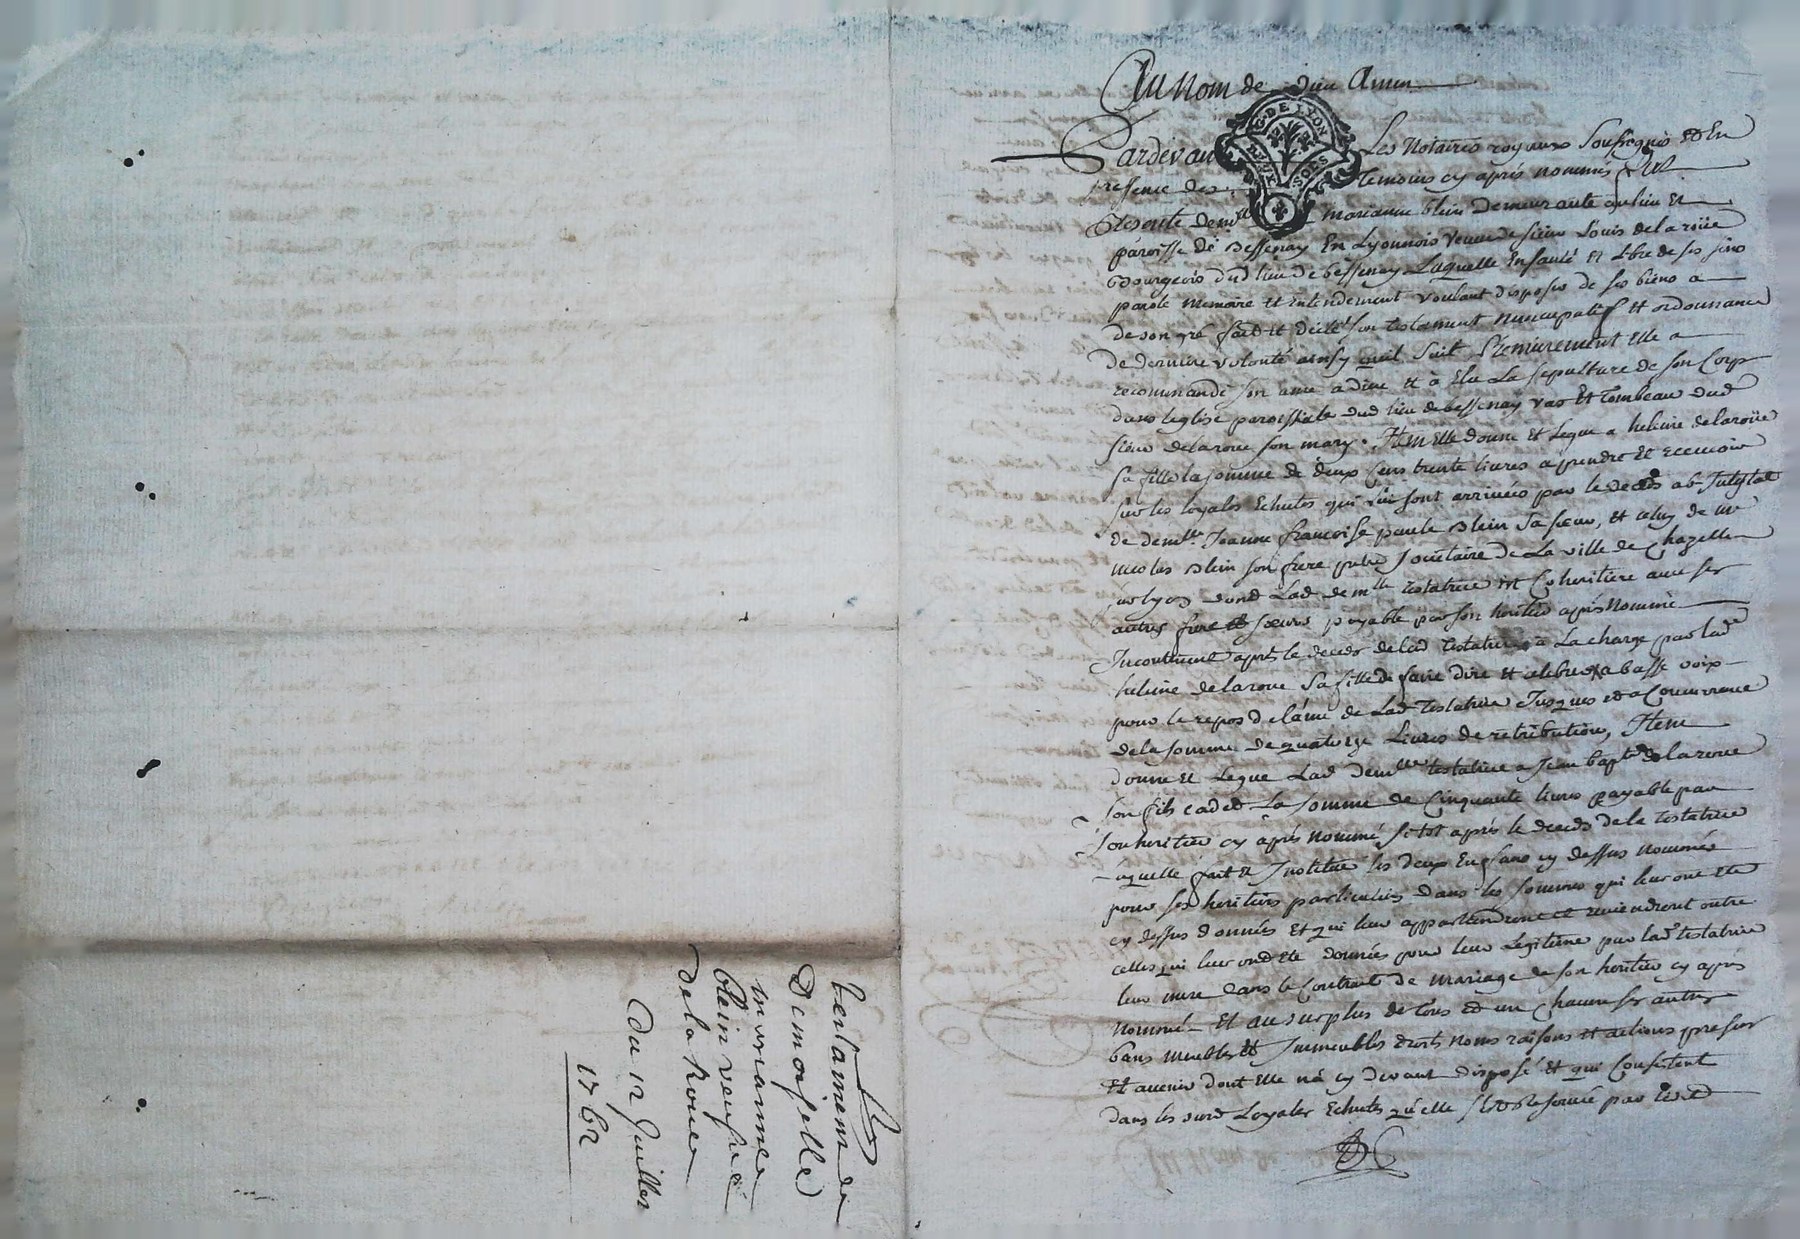 Au Nom de Dieu Amen
Pardevant Les Notaires royaux Soussignés et En
presence des temoins cy aprés nommés fut
Presente demlle marianne blein demeurante au lieu Et
paroisse de Bessenay En Lyonnois veuve de sieur Loüis delaroüe
Bourgeois dud lieu de bessenay Laquelle En santé Et libre de ses sens
parole memoire et Entendement voulant disposer de ses biens a
de son gré fait et dicté son testament nuncupatif et ordonnance
de derniere volonté ainsy quil suit Premierement Elle a
recommandé son ame a dieu et à Elu La sepulture de son Corps
dans leglise paroissiale dud lieu de bessenay vas Et Tombeau dud
sieur delaroue son mary. Item Elle donne Et Legue a heleine delaroüe
sa fille la somme de deux Cens trente livres a prendre Et recevoir
sur les loyales Echutes qui lui sont arrivées par le decés ab Intestat
de demlle Jeanne francoise paule Blein sa soeur, et celuy de mr
nicolas Blein son frere pretre societaire de La ville de Chazelle
sur lyon dont Lad demlle testatrice est Coheritiere avec ses
autres frere et soeurs payable par son heritier aprés Nommé
Incontinent aprés le decés delad testatrice à La charge par lade
heleine delaroue sa fille de faire dire et celebrer a basse voix
pour le repos de lâme de Lad testatrice Jusques et a Concurrance
de la somme de quatorze Livres de retribution, Item
donne Et Legue Lad demlle testatrice a Jean bapte delaroue
son fils cadet La somme de Cinquante livres payable par
son heritier cy aprés nommé, si tot aprés le decés de la testatrice
-aquelle fait Et Institue les deux Enfans cy dessus nommés
pour ses heritiers particuliers dans les sommes qui leur ont Eté
cy dessus données Et qui leur appartiendront et reviendront outre
celles qui leur ont Eté données pour leur Legitime par lad testatrice
leur mere dans le Contrat de mariage de son heritier cy aprés
nommé - Et au surplus de tous et un Chacun ses autres
biens meubles et Immeubles droits noms raisons et actions presens
Et avenir dont Elle n'a cy devant disposé Et qui Consistent
dans les susd Loyales Echutes qu'elle s'est reservée par led
testament de
Demoiselle
marianne
blein veufve
de la Roue
Du 12 Juillet
1762
G. DE LYON
DEUX SOLS